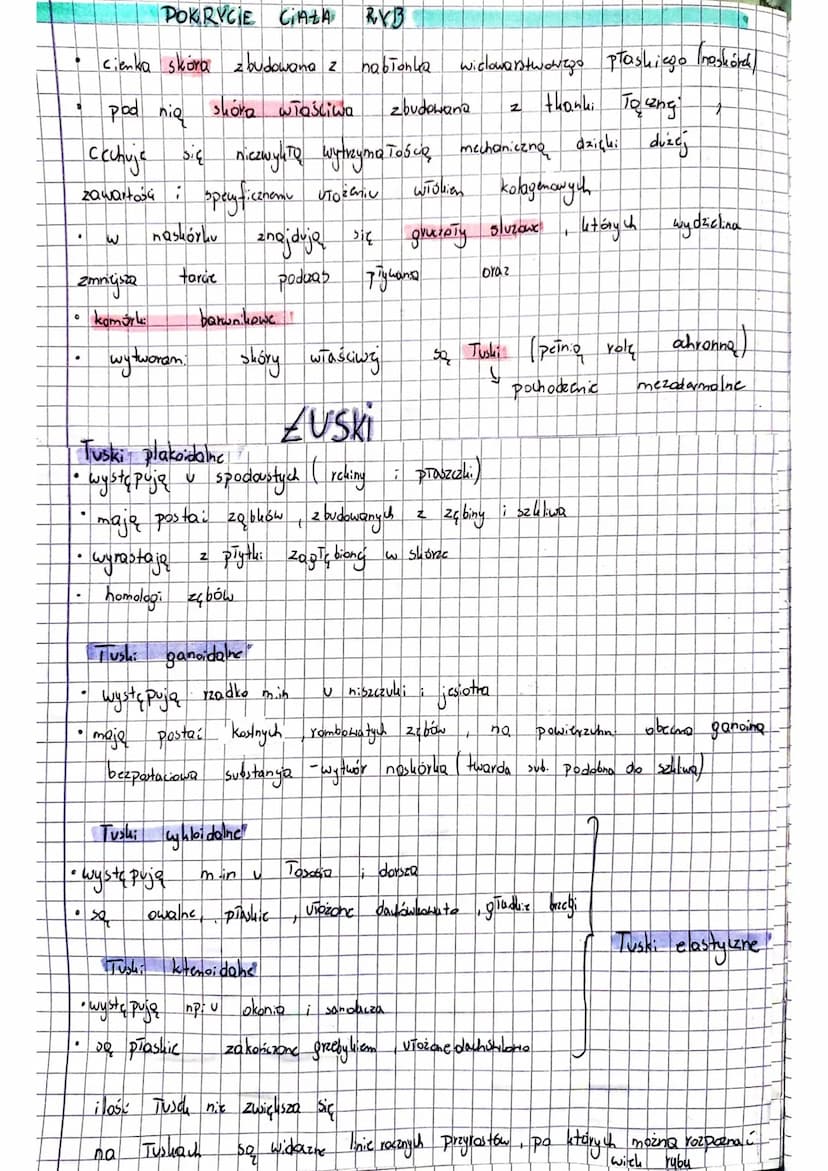 POKRYCIE CIAŁA RYB
• cienka skóra zbudowana z nabłonka wielowarstwowego płaskiego (naskórek)
• pod nią skóra właściwa zbudowana z tkanki łącznej,
cechuje się niezwykłą wytrzymałością mechaniczną dzięki dużej
zawartości i specyficznemu ułożeniu włókien kolagenowych
• w naskórku znajdują się gruczoły śluzowe, których wydzielina
zmniejsza tarcie podczas pływania oraz
• komórki barwnikowe
• wytworami skóry właściwej są łuski (pełnią rolę ochronną)
↳ pochodzenie mezodermalne
ŁUSKI
Łuski plakoidalne
• występują u spodoustych (rekiny i płaszczki)
• mają postać ząbków, zbudowanych z zębiny i szkliwa
• wyrastają z płytki zagłębionej w skórze
• homologi zębów
Łuski ganoidalne
• występują rzadko m.in u niszczuki i jesiotra
• mają postać kostnych, rombowatych zębów, na powierzchni obecna ganoina
bezpostaciowa substancja - wytwór naskórka (twarda sub. podobna do szkliwa)
Łuski cykloidalne
• występują m.in u łososia i dorsza
• są owalne, płaskie, ułożone dachówkowato, gładkie brzegi
Łuski elastyczne
Łuski ktenoidalne
• występują np. u okonia i sandacza
• są płaskie zakończone grzebykiem, ułożone dachówkowato
ilość łusek nie zwiększa się
na łuskach są widoczne linie rocznych przyrostów, po których można rozpoznać
wiek ryby